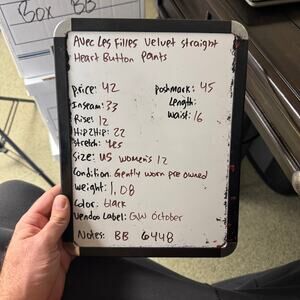 Box BB
Avec Les Filles Velvet straight
Heart Button Pants
Price: 42
Poshmark: 45
Inseam: 33
Length:
Rise: 12
Waist: 16
Hip2Hip: 22
Stretch: Yes
Size: US Women's 12
Condition: Gently worn pre owned
Weight: 1.08
Color: black
Vendoo Label: GW October
Notes: BB 6448